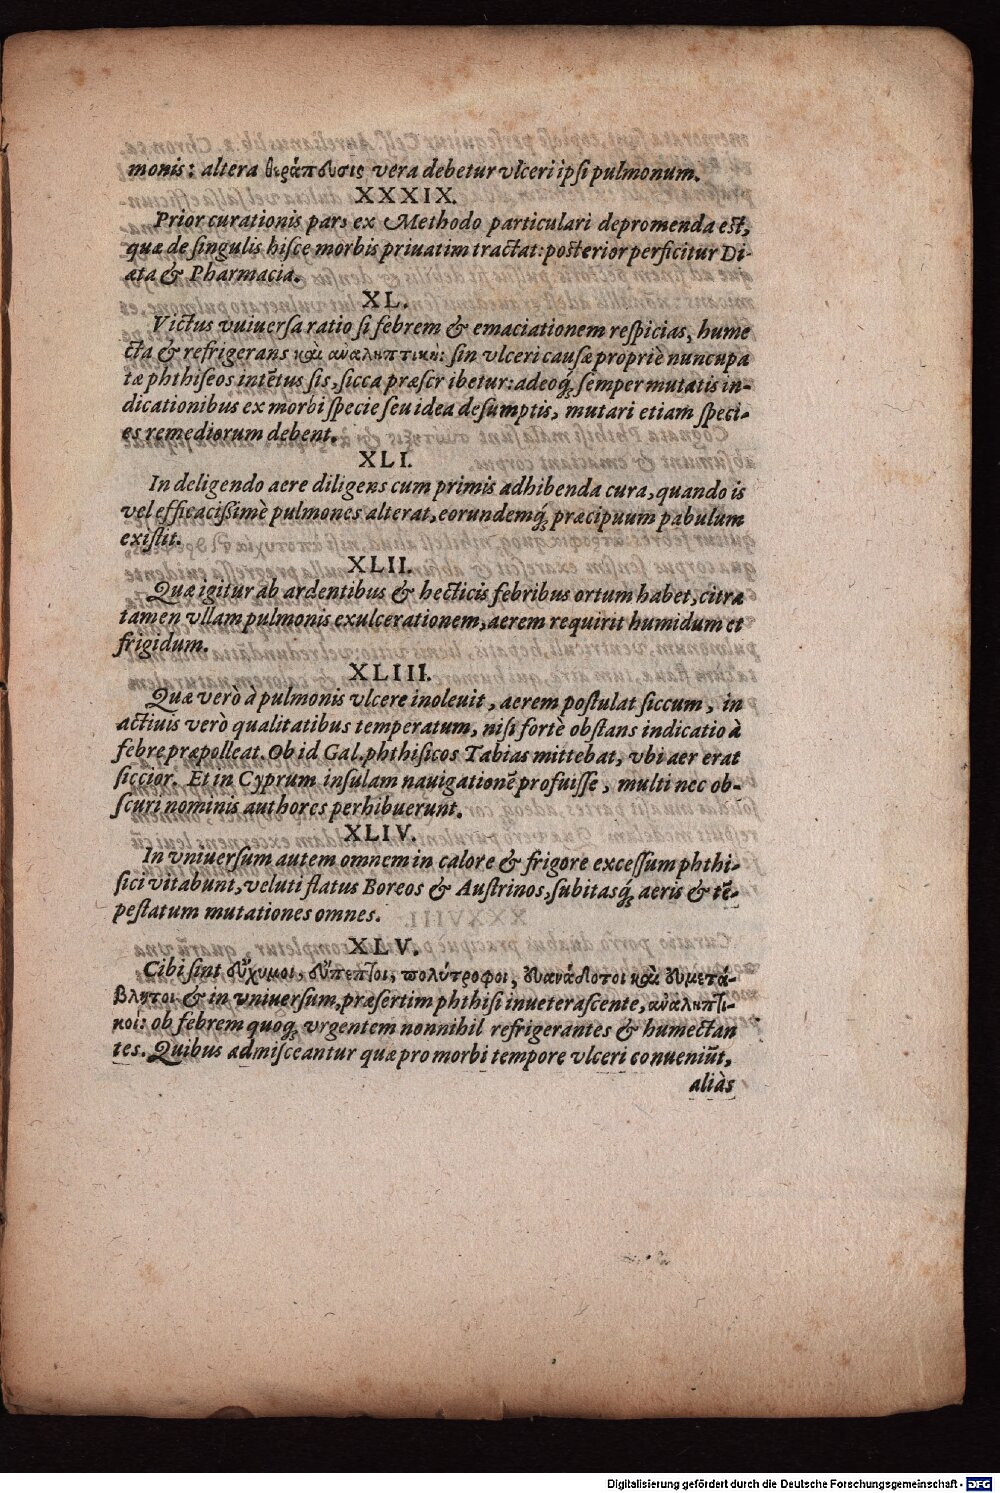 monis: altera θεράπευσις vera debetur vlceri ipsi pulmonum.
XXXIX.
Prior curationis pars ex Methodo particulari depromenda est,
quæ de singulis hisce morbis priuatim tractat: posterior perficitur Di-
æta & Pharmacia.
XL.
Victus vuiuersa ratio si febrem & emaciationem respicias, hume
cta & refrigerans καὶ ἀναληπτική: sin vlceri causæ propriè nuncupa
tæ phthiseos intētus sis, sicca præscribetur: adeoq́; semper mutatis in-
dicationibus ex morbi specie seu idea desumptis, mutari etiam speci-
es remediorum debent.
XLI.
In deligendo aere diligens cum primis adhibenda cura, quando is
vel efficacißimè pulmones alterat, eorundemq́; præcipuum pabulum
existit.
XLII.
Quæ igitur ab ardentibus & hecticis febribus ortum habet, citra
tamen vllam pulmonis exulcerationem, aerem requirit humidum et
frigidum.
XLIII.
Quæ verò à pulmonis vlcere inoleuit, aerem postulat siccum, in
actiuis verò qualitatibus temperatum, nisi fortè obstans indicatio à
febre præpolleat. Ob id Gal. phthisicos Tabias mittebat, vbi aer erat
siccior. Et in Cyprum insulam nauigationē profuisse, multi nec ob-
scuri nominis authores perhibuerunt.
XLIV.
In vniuersum autem omnem in calore & frigore excessum phthi-
sici vitabunt, veluti flatus Boreos & Austrinos, subitasq́; aeris & tē-
pestatum mutationes omnes.
XLV.
Cibi sint εὔχυμοι, εὔπεπτοι, πολύτροφοι, εὐανάδοτοι καὶ εὐμετά-
βλητοι & in vniuersum, præsertim phthisi inueterascente, ἀναληπτι-
κοί: ob febrem quoq́; vrgentem nonnihil refrigerantes & humectan
tes. Quibus admisceantur quæ pro morbi tempore vlceri conueniūt,
aliàs
Digitalisierung gefördert durch die Deutsche Forschungsgemeinschaft - DFG